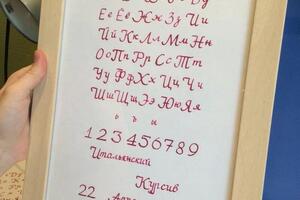 Ее Ёё Жж Зз Ии
Йй Кк Лл Мм Нн
Оо Пп Рр Сс Тт
Уу Фф Хх Цц Чч
Шш Щщ Ээ Юю Яя
ъ ы ь
1 2 3 4 5 6 7 8 9
Итальянский
Курсив
22